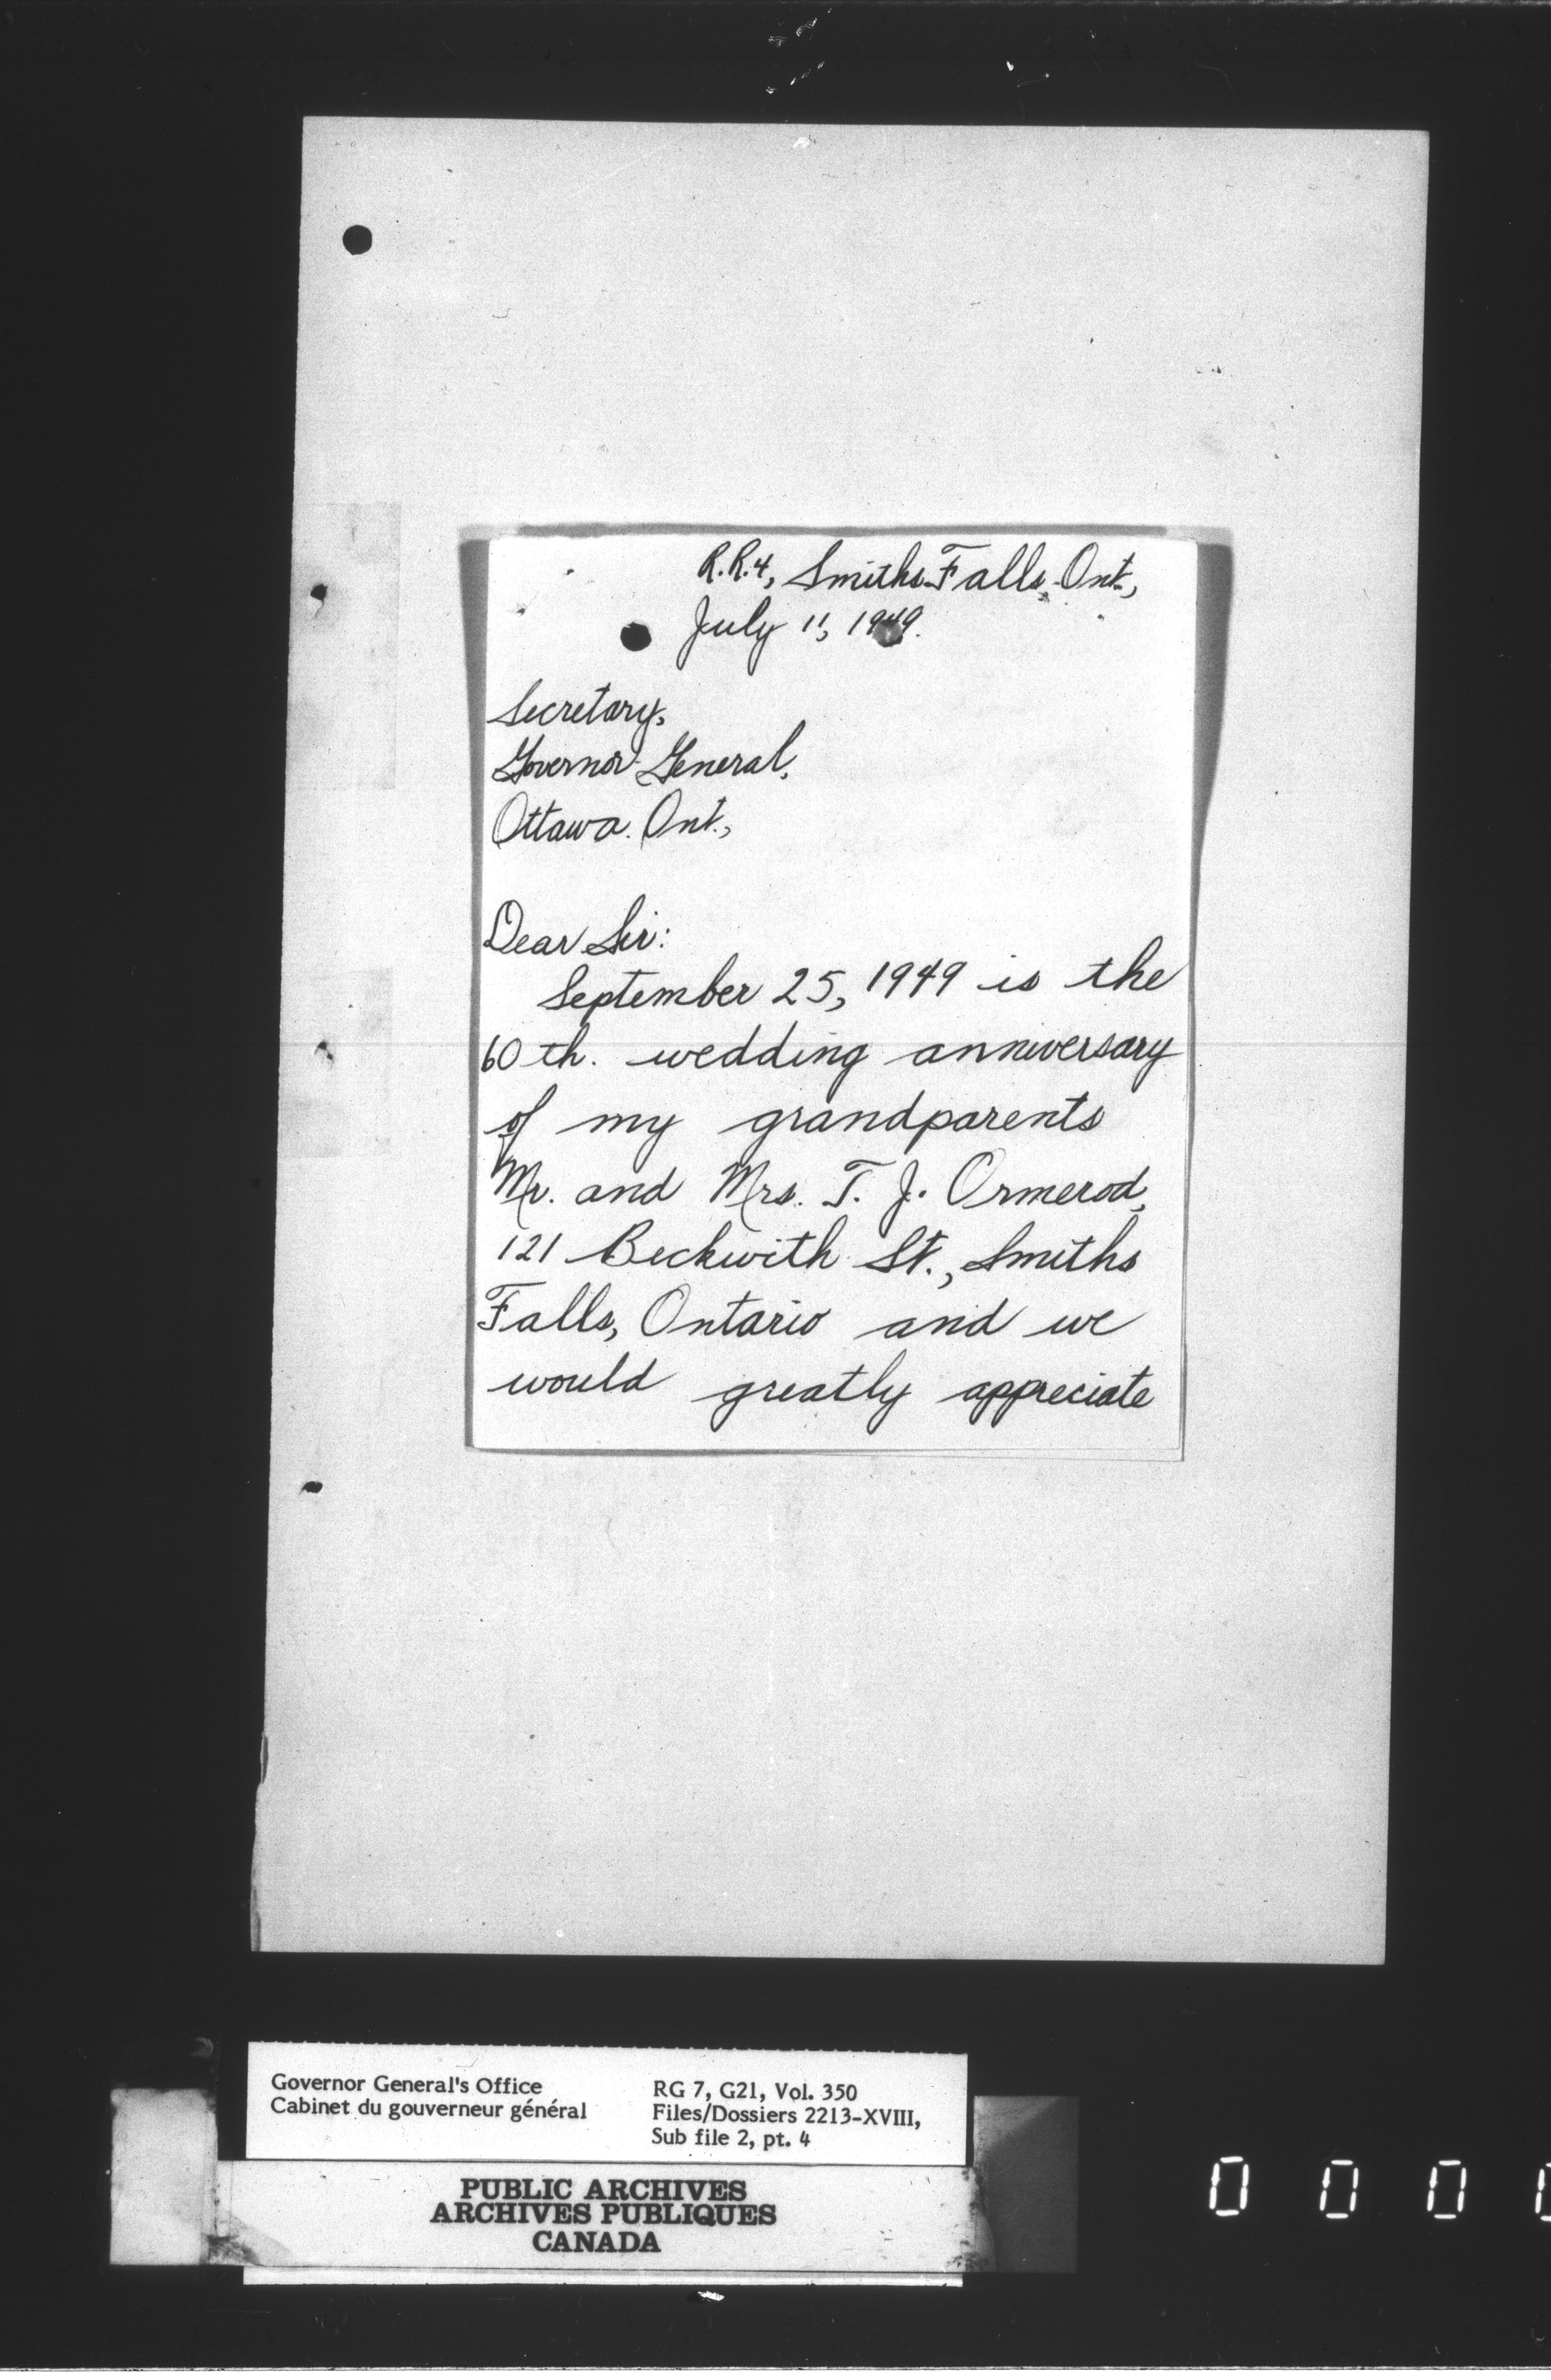 R.R.4, Smiths Falls, Ont.,
July 11, 1949.
Secretary,
Governor General,
Ottawa. Ont.,
Dear Sir:
September 25, 1949 is the
60th. wedding anniversary
of my grandparents
Mr. and Mrs. T. J. Ormerod,
121 Beckwith St., Smiths
Falls, Ontario and we
would greatly appreciate
Governor General's Office
Cabinet du gouverneur général
RG 7, G21, Vol. 350
Files/Dossiers 2213-XVIII,
Sub file 2, pt. 4
PUBLIC ARCHIVES
ARCHIVES PUBLIQUES
CANADA
0 0 0